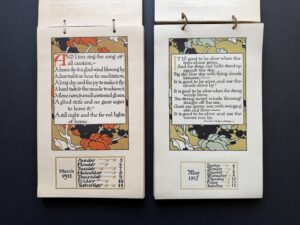 AND I too sing the song of
all creation,—
A brave sky & a glad wind blowing by,
A clear trail & an hour for meditation,
A long day and the joy to make it fly,
A hard task & the muscle to achieve it,
A fierce noon & a well-contented gloam,
A good strife and no great regret
to leave it,—
A still night and the far red lights
of home.
March
1911
Sunday 5
Monday 6
Tuesday 7
Wednesday 8
Thursday 9
Friday 10
Saturday 11
'TIS good to be alive when the
trees shine green,
And the steep red hills stand up
against the sky;
Big sky, blue sky, with flying clouds
between—
It is good to be alive and see the
clouds drive by!
It is good to be alive when the
strong winds blow,
The strong, sweet winds blowing
straight off the sea;
It is good to be alive and see the
May
1912
Sunday
Monday
Tuesday
Wednesday
Thursday
Friday
Saturday